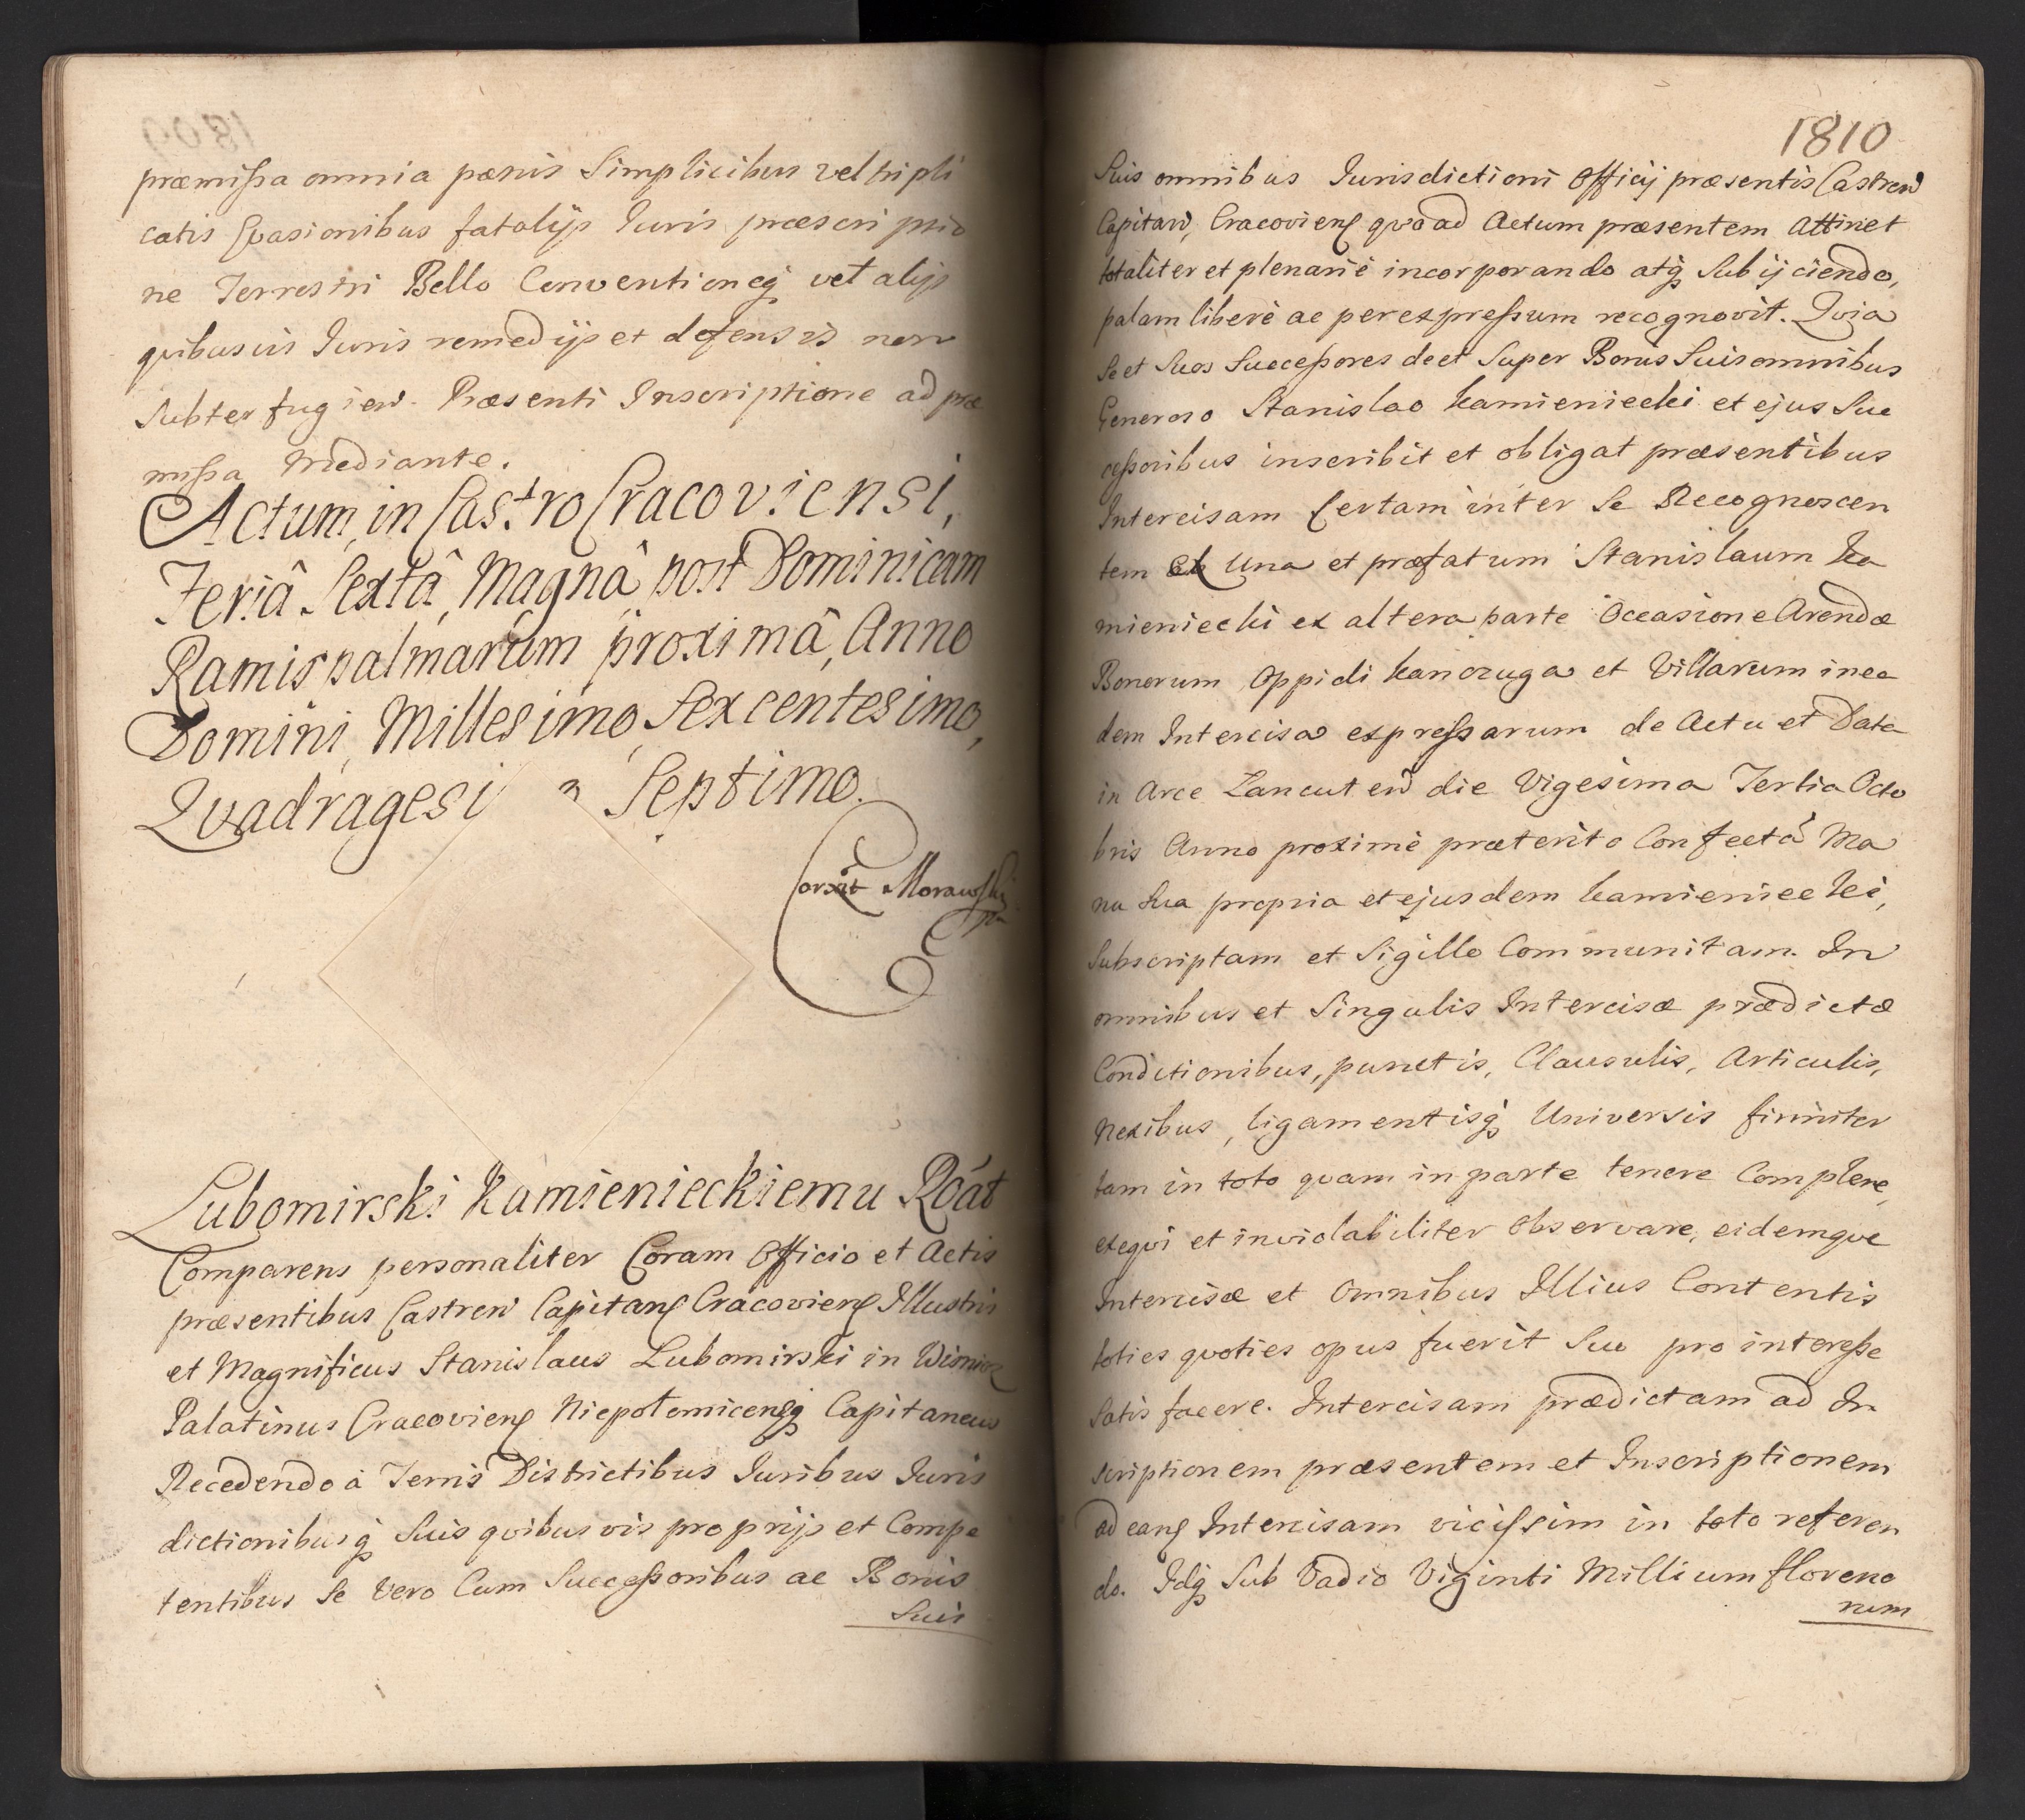 præmissa omnia pœnis Simplicibus vel tripli
catis Evasionibus fatalijs Juris præscriptio
ne Terrestri Bello Conventioneq vel alijs
quibusvis Juris remedijs et defensis non
Subterfugien. Præsenti Inscriptione ad præ
missa Mediante.
Actum, in Castro Cracoviensi,
Feriâ Sextâ, Magnâ post Dominicam
Ramispalmarum proximâ, Anno
Domini, Millesimo, Sexcentesimo,
Quadragesi Septimo.
Corxit Morawski
Lubomirski Kamienieckiemu Roát
Comparens personaliter Coram Officio et Actis
præsentibus Castren Capitan Cracovien Illustris
et Magnificus Stanislaus Lubomirski in Wisnicz
Palatinus Cracovien Niepolomicenq Capitaneus
Recedendo à Terris Districtibus Juribus Juris
dictionibusq Suis quibusvis proprijs et Compe
tentibus Se Vero Cum Successoribus ac Bonis
Suis
1810
Suis omnibus Jurisdictioni Officij præsentis Castren
Capitan, Cracovien quoad Actum præsentem Attinet
totaliter et plenariè incorporando atq Subijciendo,
palam liberè ac perexpressum recognovit. Quia
Se et Suos Successores de et Super Bonis Suis omnibus
Generoso Stanislao Kamieniecki et ejus Suc
cessoribus inscribit et obligat præsentibus
Intercisam Certam inter Se Recognoscen
tem ex Una et præfatum Stanislaum Ka
mieniecki ex altera parte Occasione Arendæ
Bonorum Oppidi Kanczuga et Villarum in ea
dem Intercisa expressarum de Actu et Data
in Arce Lancuten die Vigesima Tertia Octo
bris Anno proximè præterito Confectâ Ma
nu Sua propria et ejusdem Kamieniecki,
Subscriptam et Sigillo Communitam. In
omnibus et Singulis Intercisæ prædictæ
Conditionibus, punctis, Clausulis, Articulis,
Nexibus, ligamentisq Universis firmiter
tam in toto quam in parte tenere Complere,
exequi et inviolabiliter Observare, eidemque
Intercisæ et Omnibus Illius Contentis
toties quoties opus fuerit Suo pro interesse
Satisfacere. Intercisam prædictam ad In
scriptionem præsentem et Inscriptionem
ad ean Intercisam vicissim in toto referen
do. Idq Sub Vadio Viginti Millium floreno
rum